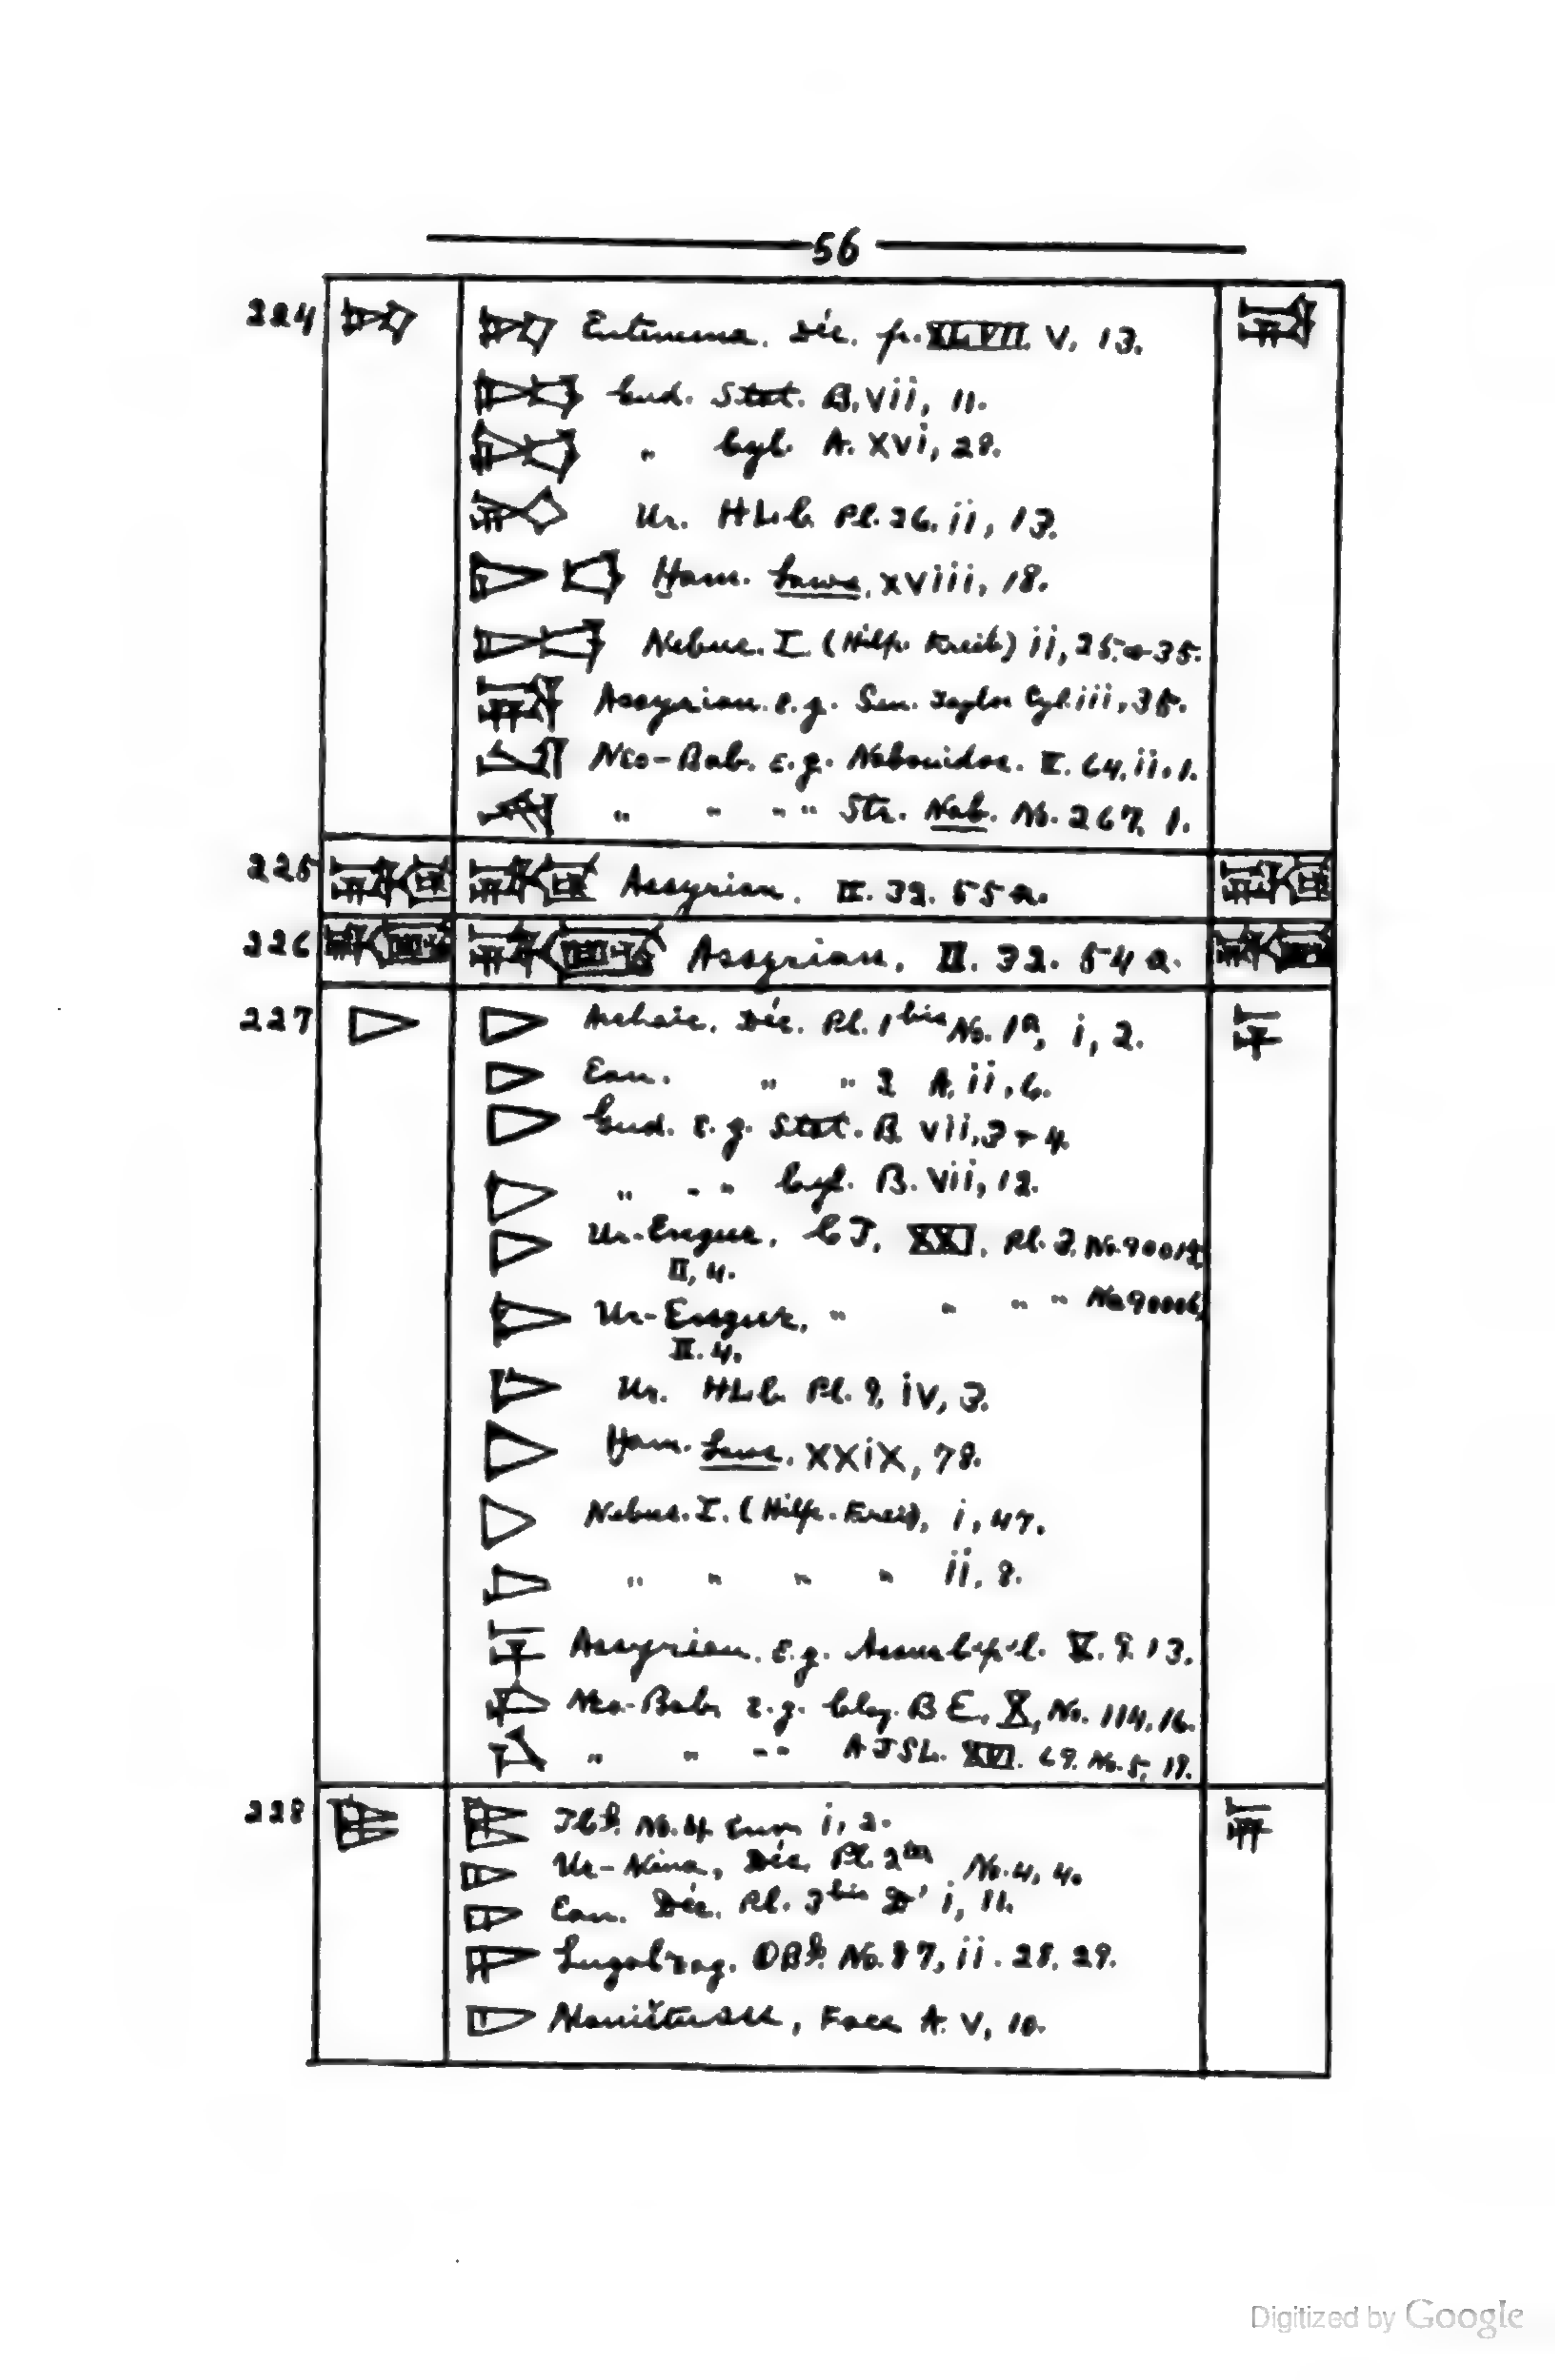 56
224 Entemena. Déc. p. XLVII. V, 13.
Gud. Stat. B. vii, 11.
" Cyl. A. xvi, 28.
Ur. HLC. Pl. 26. ii, 13.
Ham. Laws, xviii, 18.
Nebuc. I. (Hilp. Freib) ii, 25. + 35.
Assyrian. e.g. Sen. Taylor Cyl. iii, 35.
Neo-Bab. e.g. Nabonidos. I. 64. ii. 1.
" " " " Str. Nab. No. 267, 1.
225 Assyrian. II. 32. 55a.
226 Assyrian. II. 32. 54a.
227 Archaic. Déc. Pl. 1bis No. 1a, i, 2.
Ean. " " 2 A. ii, 6.
Gud. e.g. Stat. B. vii, 3 + 4.
" " " Cyl. B. vii, 12.
Ur-Engur, CT, XXI, Pl. 3, No.
II, 4.
Ur-Engur, " " " " No.
II. 4.
Ur. HLC. Pl. 9, iv, 3.
Ham. Laws. XXIX, 78.
Nebuc. I. (Hilp. Freib), i, 47.
" " " " ii, 8.
Assyrian. e.g. Assurb-p-l. V. 9. 13.
Neo-Bab. e.g. Clay. BE, X, No. 114, 16.
" " " " AJSL. XVI. 69. No. 5, 19.
228 i, 2.
Ur-Nina, Déc. Pl. 2ter No. 4, 4.
Ean. Déc. Pl. 3bis D' i, 11.
Lugalzag. OBI. No. 87, ii. 28. 29.
Maništusu, Face A. V, 10.
Digitized by Google